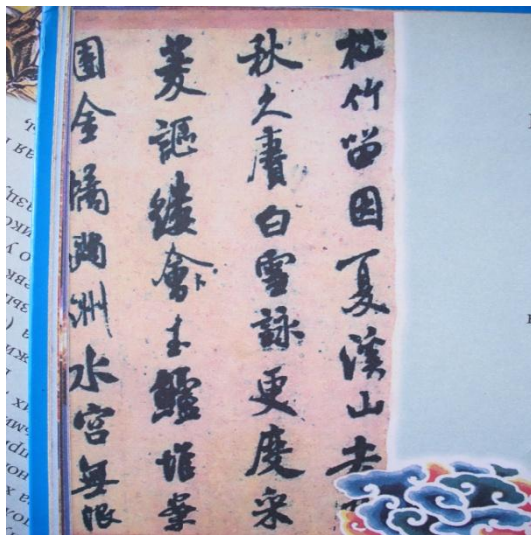 松竹留因夏溪山去
秋久賡白雪詠更度采
菱謳縷會玉鱸堆案
團金橘滿洲水宮無限